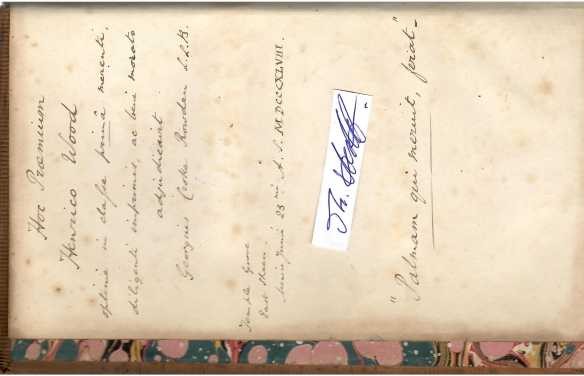 Hoc Præmium
Henrico Wood
optimè in classe primâ merenti,
diligenti imprimis, ac bene morato
adjudicavit
Georgius Cooke Rowden L.L.B.
Temple Grove
East Sheen
Junii 23 A. S. MDCCCXLVIII.
Th.
"Palmam qui meruit, ferat."